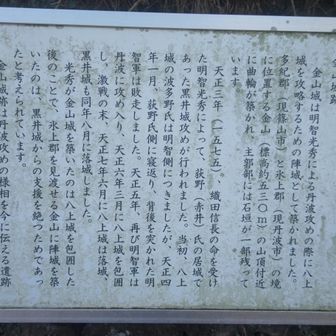 金山城跡
金山城は明智光秀による丹波攻めの際に八上
城を攻略するための陣城として築かれました。
多紀郡（現篠山市）と氷上郡（現丹波市）の境
に位置する金山（標高約五三〇ｍ）の山頂付近
に曲輪が築かれ、主郭部には石垣が一部残って
います。
天正三年（一五七五）、織田信長の命を受け
た明智光秀によって、荻野（赤井）氏の居城で
あった黒井城攻めが行われました。当初、八上
城の波多野氏は明智側につきましたが、天正四
年一月、荻野氏側に寝返り、背後を突かれた明
智軍は敗走しました。天正五年、再び明智軍は
丹波に攻め入り、天正六年三月に八上城を包囲
し、激戦の末、天正七年六月に八上城は落城、
黒井城も同年八月に落城しました。
光秀が金山城を築いたのは八上城を包囲した
後のことで、氷上郡を見渡せる金山に陣城を築
いたのは、黒井城からの支援を絶つためであっ
たと考えられています。
金山城跡は丹波攻めの様相を今に伝える遺跡